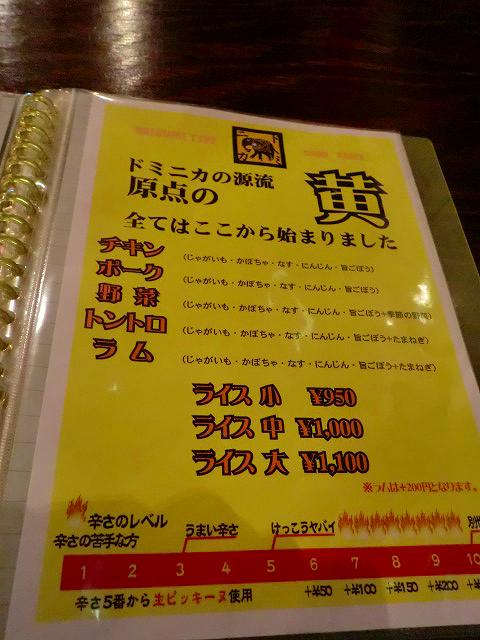 ドミニカ
ドミニカの源流
原点の 黄
全てはここから始まりました
チキン (じゃがいも・かぼちゃ・なす・にんじん・旨ごぼう)
ポーク (じゃがいも・かぼちゃ・なす・にんじん・旨ごぼう)
野菜 (じゃがいも・かぼちゃ・なす・にんじん・旨ごぼう+季節の野菜)
トントロ (じゃがいも・かぼちゃ・なす・にんじん・旨ごぼう+たまねぎ)
ラム (じゃがいも・かぼちゃ・なす・にんじん・旨ごぼう+たまねぎ)
ライス 小 ¥950
ライス 中 ¥1,000
ライス 大 ¥1,100
※ラムは+200円となります。
辛さのレベル
辛さの苦手な方 うまい辛さ けっこうヤバイ
1 2 3 4 5 6 7 8 9 10
+¥50 +¥100 +¥150 +¥200
辛さ5番から生ピッキーヌ使用